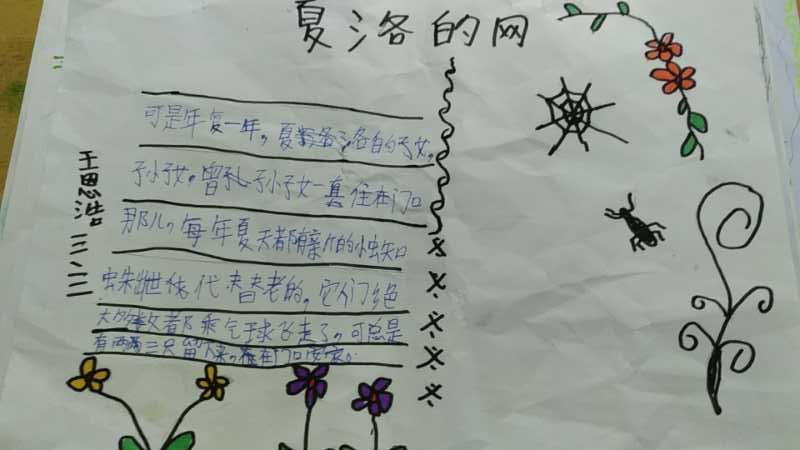 夏洛的网
王思浩
三、二
可是年复一年，夏洛的子女，
孙子女，曾孙孙子女一直住在门口
那儿，每年夏天都有新的小蜘
蛛出世代替老的，它们绝
大多数都乘气球飞走了，可总是
有两三只留下来，在门口安家。